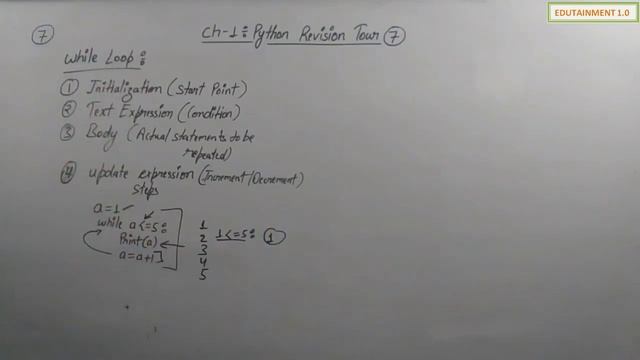 EDUTAINMENT 1.0
7
Ch-1: Python Revision Tour 7
While Loop:
1 Initialization (Start Point)
2 Text Expression (Condition)
3 Body (Actual statements to be
repeated)
4 update expression (Increment/Decrement)
Steps
a=1
while a<=5:
Print(a)
a=a+1
1
2
3
4
5
1<=5: 1